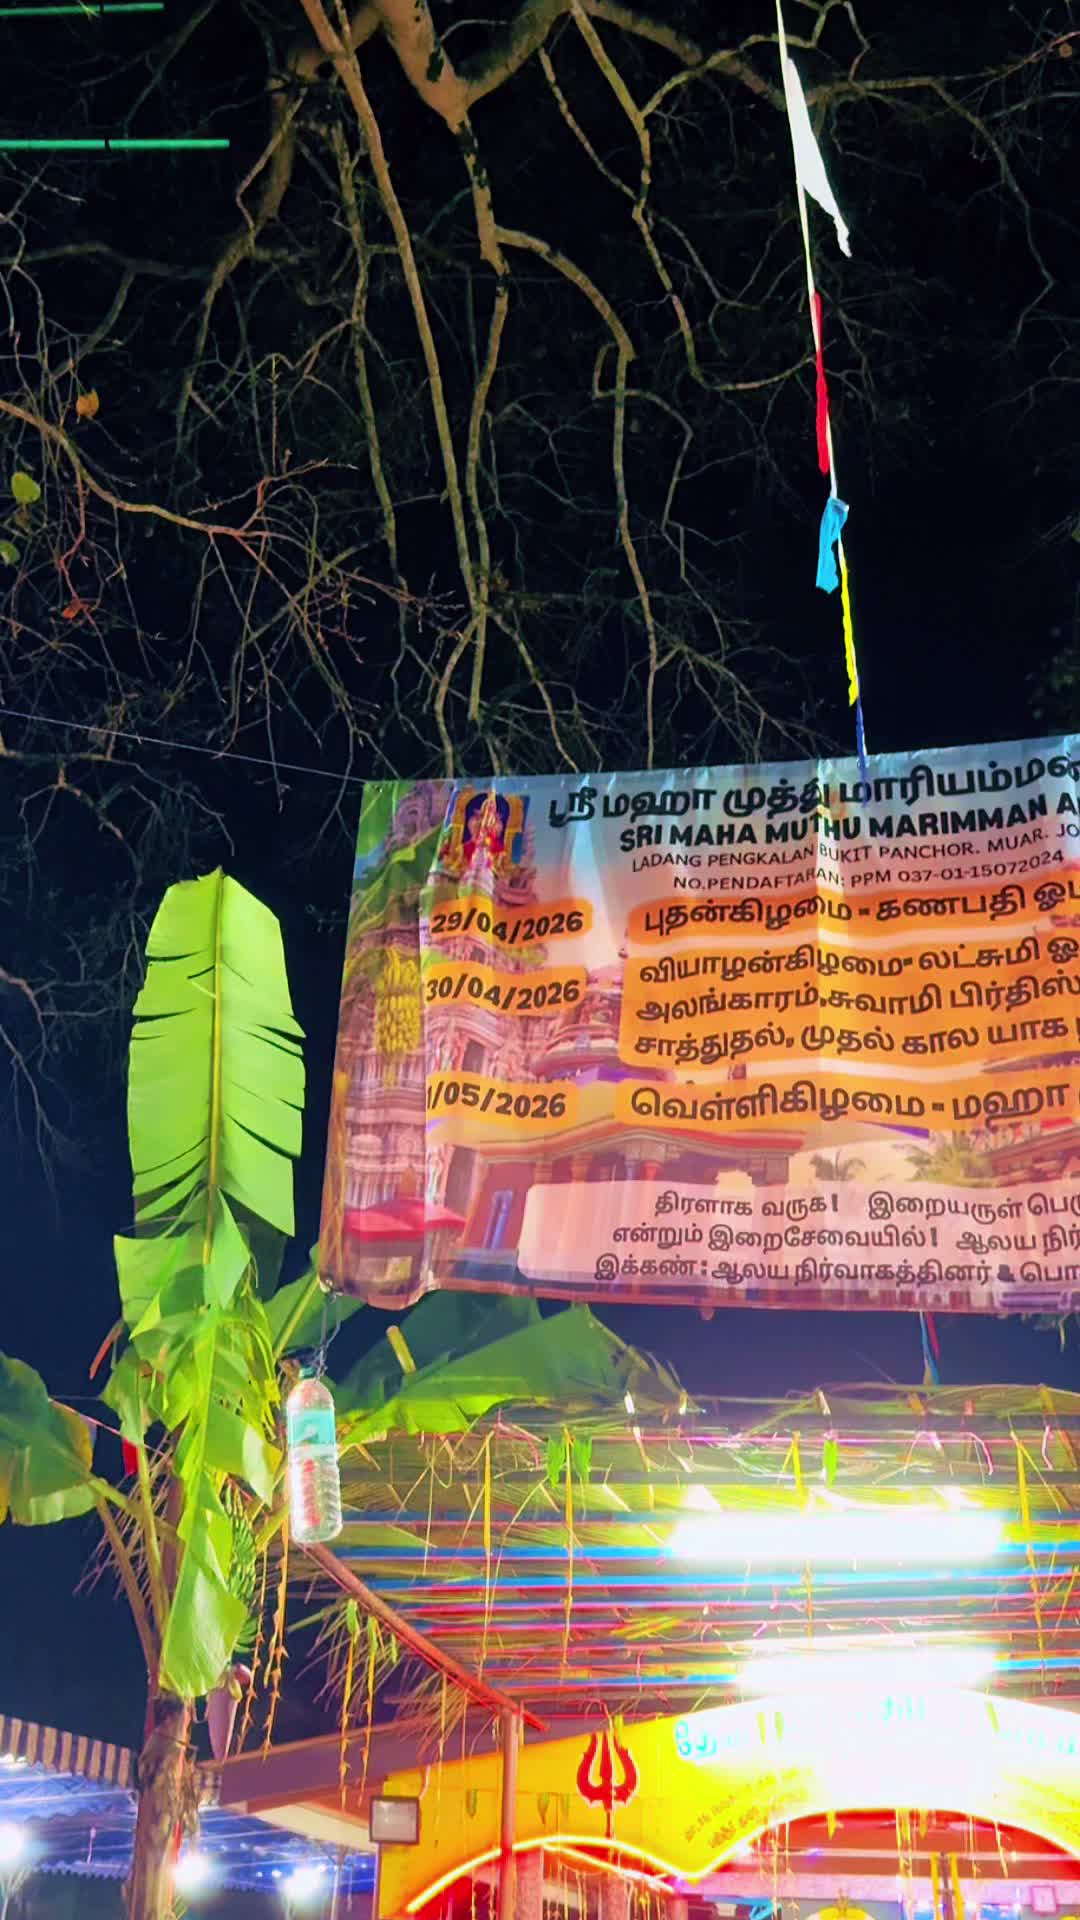 ஸ்ரீ மஹா முத்து மாரியம்மன்
SRI MAHA MUTHU MARIMMAN A
LADANG PENGKALAN BUKIT PANCHOR. MUAR. JO
NO.PENDAFTARAN: PPM 037-01-15072024
29/04/2026 புதன்கிழமை - கணபதி ஓ
30/04/2026 வியாழன்கிழமை- லட்சுமி ஓ
அலங்காரம்,சுவாமி பிர்திஸ்
சாத்துதல், முதல் கால யாக
1/05/2026 வெள்ளிகிழமை - மஹா
திரளாக வருக! இறையருள் பெ
என்றும் இறைசேவையில்! ஆலய நிர்
இக்கண் : ஆலய நிர்வாகத்தினர் & பொ